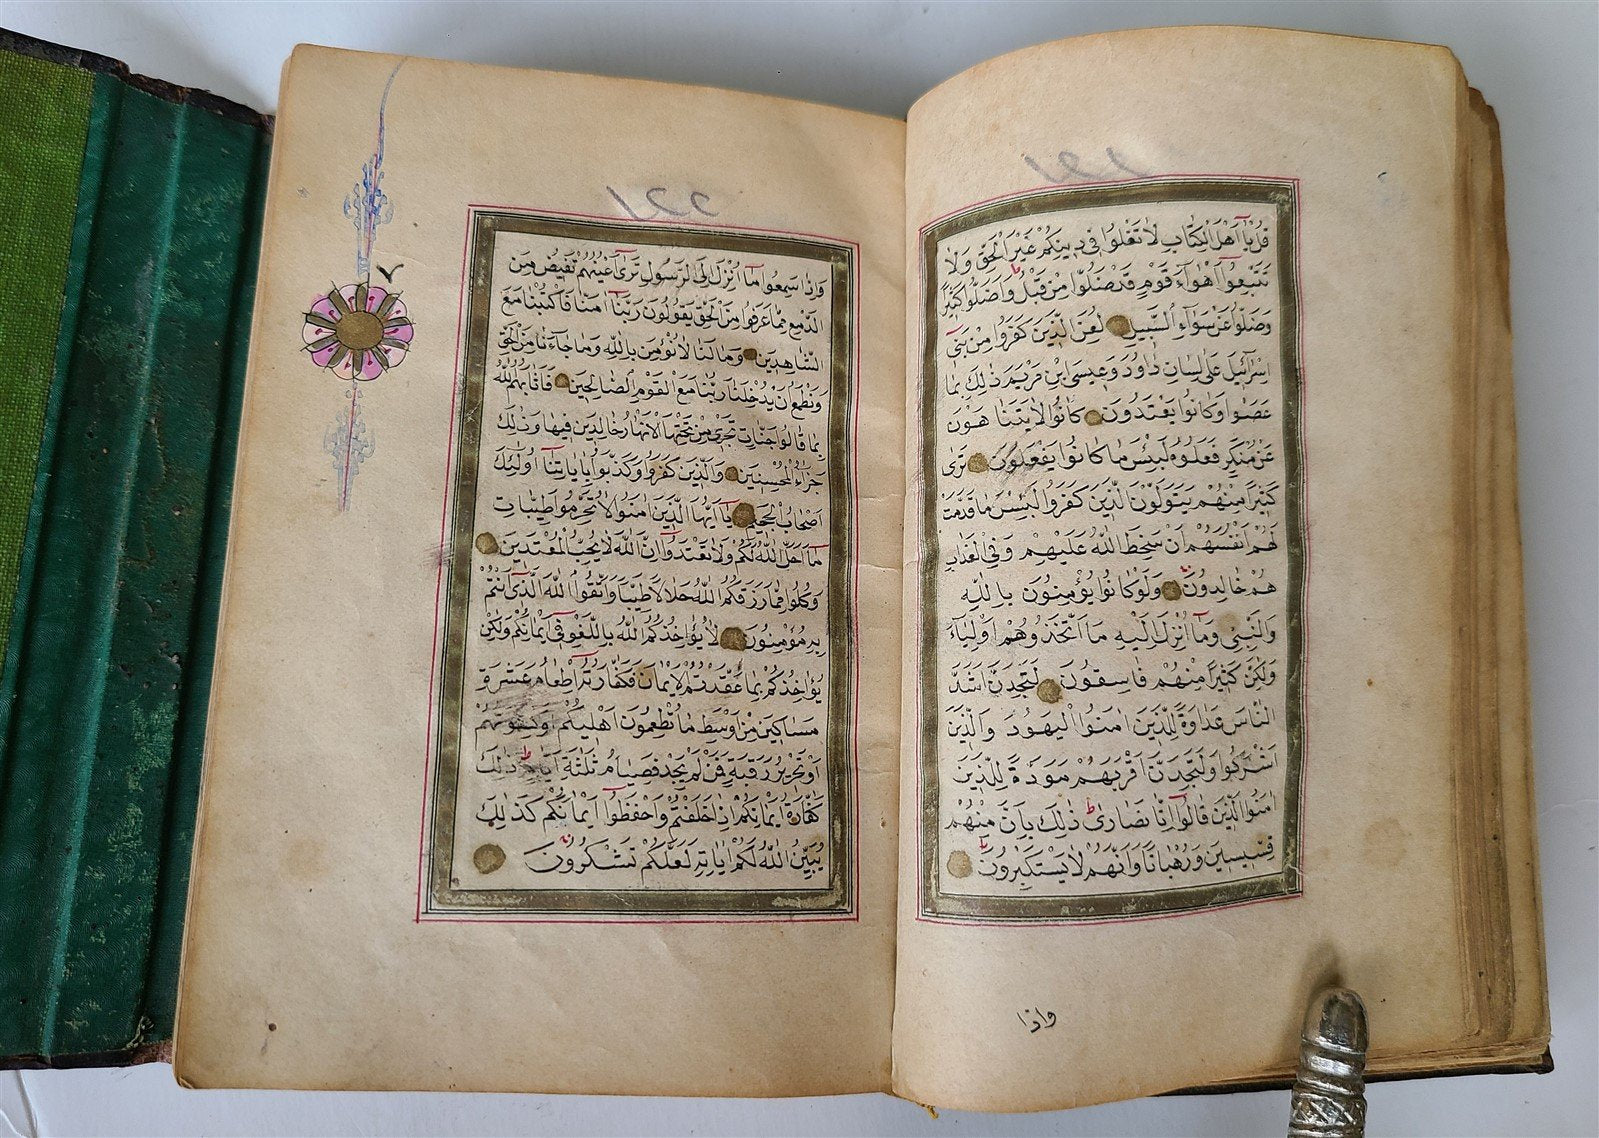 قُلْ يَا أَهْلَ الْكِتَابِ لَا تَغْلُوا فِي دِينِكُمْ غَيْرَ الْحَقِّ وَلَا
تَتَّبِعُوا أَهْوَاءَ قَوْمٍ قَدْ ضَلُّوا مِنْ قَبْلُ وَأَضَلُّوا كَثِيرًا
وَضَلُّوا عَنْ سَوَاءِ السَّبِيلِ لُعِنَ الَّذِينَ كَفَرُوا مِنْ بَنِي
إِسْرَائِيلَ عَلَى لِسَانِ دَاوُدَ وَعِيسَى ابْنِ مَرْيَمَ ذَلِكَ بِمَا
عَصَوْا وَكَانُوا يَعْتَدُونَ كَانُوا لَا يَتَنَاهَوْنَ
عَنْ مُنْكَرٍ فَعَلُوهُ لَبِئْسَ مَا كَانُوا يَفْعَلُونَ تَرَى
كَثِيرًا مِنْهُمْ يَتَوَلَّوْنَ الَّذِينَ كَفَرُوا لَبِئْسَ مَا قَدَّمَتْ
لَهُمْ أَنْفُسُهُمْ أَنْ سَخِطَ اللَّهُ عَلَيْهِمْ وَفِي الْعَذَابِ
هُمْ خَالِدُونَ وَلَوْ كَانُوا يُؤْمِنُونَ بِاللَّهِ
وَالنَّبِيِّ وَمَا أُنْزِلَ إِلَيْهِ مَا اتَّخَذُوهُمْ أَوْلِيَاءَ
وَلَكِنَّ كَثِيرًا مِنْهُمْ فَاسِقُونَ لَتَجِدَنَّ أَشَدَّ
النَّاسِ عَدَاوَةً لِلَّذِينَ آمَنُوا الْيَهُودَ وَالَّذِينَ
أَشْرَكُوا وَلَتَجِدَنَّ أَقْرَبَهُمْ مَوَدَّةً لِلَّذِينَ
آمَنُوا الَّذِينَ قَالُوا إِنَّا نَصَارَى ذَلِكَ بِأَنَّ مِنْهُمْ
قِسِّيسِينَ وَرُهْبَانًا وَأَنَّهُمْ لَا يَسْتَكْبِرُونَ
واذا
وَإِذَا سَمِعُوا مَا أُنْزِلَ إِلَى الرَّسُولِ تَرَى أَعْيُنَهُمْ تَفِيضُ مِنَ
الدَّمْعِ مِمَّا عَرَفُوا مِنَ الْحَقِّ يَقُولُونَ رَبَّنَا آمَنَّا فَاكْتُبْنَا مَعَ
الشَّاهِدِينَ وَمَا لَنَا لَا نُؤْمِنُ بِاللَّهِ وَمَا جَاءَنَا مِنَ الْحَقِّ
وَنَطْمَعُ أَنْ يُدْخِلَنَا رَبُّنَا مَعَ الْقَوْمِ الصَّالِحِينَ فَأَثَابَهُمُ اللَّهُ
بِمَا قَالُوا جَنَّاتٍ تَجْرِي مِنْ تَحْتِهَا الْأَنْهَارُ خَالِدِينَ فِيهَا وَذَلِكَ
جَزَاءُ الْمُحْسِنِينَ وَالَّذِينَ كَفَرُوا وَكَذَّبُوا بِآيَاتِنَا أُولَئِكَ
أَصْحَابُ الْجَحِيمِ يَا أَيُّهَا الَّذِينَ آمَنُوا لَا تُحَرِّمُوا طَيِّبَاتِ
مَا أَحَلَّ اللَّهُ لَكُمْ وَلَا تَعْتَدُوا إِنَّ اللَّهَ لَا يُحِبُّ الْمُعْتَدِينَ
وَكُلُوا مِمَّا رَزَقَكُمُ اللَّهُ حَلَالًا طَيِّبًا وَاتَّقُوا اللَّهَ الَّذِي أَنْتُمْ
بِهِ مُؤْمِنُونَ لَا يُؤَاخِذُكُمُ اللَّهُ بِاللَّغْوِ فِي أَيْمَانِكُمْ وَلَكِنْ
يُؤَاخِذُكُمْ بِمَا عَقَّدْتُمُ الْأَيْمَانَ فَكَفَّارَتُهُ إِطْعَامُ عَشَرَةِ
مَسَاكِينَ مِنْ أَوْسَطِ مَا تُطْعِمُونَ أَهْلِيكُمْ أَوْ كِسْوَتُهُمْ
أَوْ تَحْرِيرُ رَقَبَةٍ فَمَنْ لَمْ يَجِدْ فَصِيَامُ ثَلَثَةِ أَيَّامٍ ذَلِكَ
كَفَّارَةُ أَيْمَانِكُمْ إِذَا حَلَفْتُمْ وَاحْفَظُوا أَيْمَانَكُمْ كَذَلِكَ
يُبَيِّنُ اللَّهُ لَكُمْ آيَاتِهِ لَعَلَّكُمْ تَشْكُرُونَ